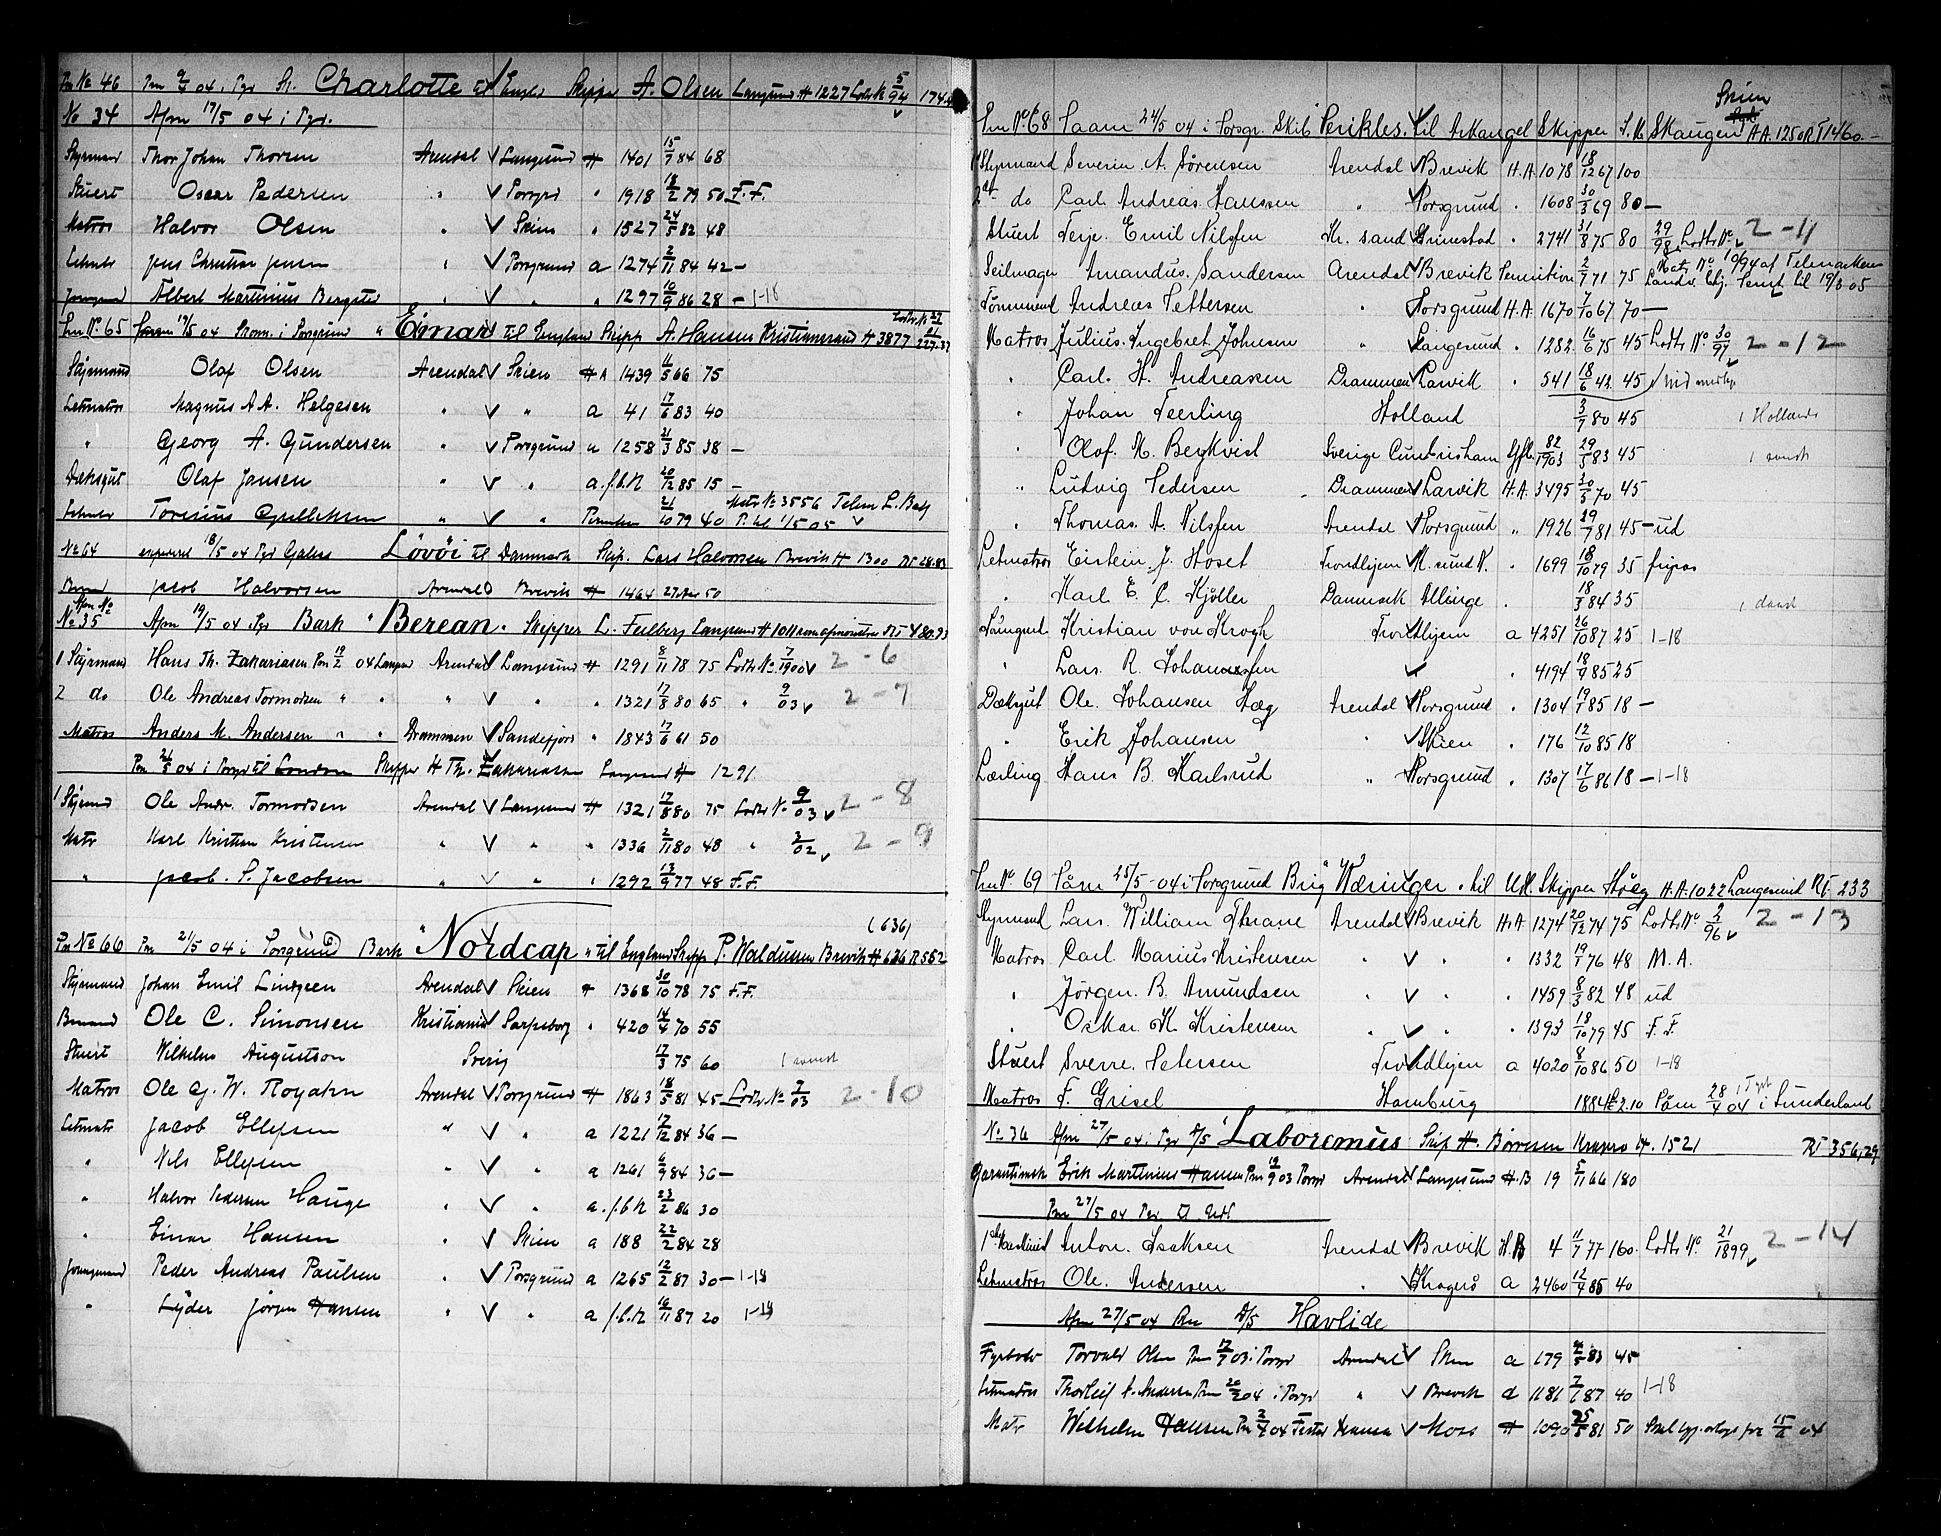 Pm No 46 Pm 9/5 04 i Pgr Sk. Charlotte til Engl. Skipper A. Olsen Langesund H 1227 Lods No 5/94 174
No 34 Afm 17/5 04 i Pgr.
Styrmand Thor Johan Thorsen Arendal Langesund H 1401 15/7 84 68
Stuert Oscar Pedersen " Porsgr " 1918 18/2 79 50 F.F.
Matros Halvor Olsen " Skien " 1527 24/5 82 48
Letmatr Jens Christian Jensen " Porsgrund a 1274 2/11 84 42 —
Jungmand Albert Martinius Bergstø " " " 1297 10/9 86 28 — 1-18
Pm No 65 17/5 04 i Porsgrund " Einar til England Skipp A. Hansen Kristianssand H 3877
Styrmand Olaf Olsen Arendal Skien H A 1439 16/5 66 75
Letmatros Magnus A A. Helgesen " " a 41 17/6 83 40
" Georg A. Gundersen " Porsgrund a 1258 21/3 85 38 —
Dæksgut Olaf Jansen " " a.f.b.K 20/12 85 15 —
Letmatr Torinius Gulliksen " " 21/10 79 40 Matr No 3556 Telem L. Batj
P. til 1/5 05
No 64 18/5 04 Pgr Galeas Løvöi til Danmark Skip. Lars Halvorsen Brevik H 1300 RT 28.83
Jacob Halvorsen Arendal Brevik H 1464 50
Afm No
No 35 Afm 19/5 04 Pgr Bark " Berean " Skipper L. Feilberg Langesund H 1011 RT 480.93
1 Styrmand Hans Th. Zakariasen Pm 19/2 04 Langes Arendal Langesund H 1291 8/11 78 75 Lods No 7/1900 2 - 6
2 do Ole Andreas Tormodsen " " " " " 1321 17/8 80 65 " 9/03 2 - 7
Matros Anders M. Andersen " " Drammen Sandefjord " 1843 17/6 61 50
Pm 21/5 04 i Porsgr til London Skipper H Th. Zakariassen Langesund H 1291
1 Styrmd Ole Andr. Tormodsen Arendal Langesund H 1321 17/8 80 75 Lods No 9/03 2 - 8
Matr Karl Kristian Kristensen " " " 1336 2/11 80 48 " 3/02 2 - 9
" Jacob. S. Jacobsen " " " 1292 13/9 77 48 F.F.
(636)
Pm No 66 Pm 21/5 04 i Porsgrund Bark " Nordcap " til England Skipp P. Waldursen Brevik H 626 R 552
Styrmand Johan Emil Lindgren Arendal Skien H 1368 30/10 78 75 F.F.
Ole C. Simonsen Kristiania Sarpsborg " 420 14/4 70 55
Stuert Wilhelm Augustson Sverig 17/3 75 60 1 svensk
Matros Ole G. W. Rogahn Arendal Porsgrund H 1863 18/5 81 45 Lods No 7/03 2 - 10
Letmatr Jacob Ellefsen " " a 1221 17/12 84 36 —
" Nils Ellefsen " " a 1261 6/9 84 36 —
" Halvor Pedersen Hauge " " a.f.b.K 23/2 86 30
" Einar Hansen " Skien a 188 22/2 84 28
Jungmand Peder Andreas Paulsen " Porsgrund a 1265 12/2 87 30 — 1-18
" Lyder Jørgen Hansen " " a f.b.K 16/11 87 20 1-18
Skien
Pm No 68 Paam 24/5 04 i Porsgr. Skib Perikles til Arkangel Skipper J. M. Skaugen H A. 1250 R.T 1460 —
1 Styrmand Severin A. Sörensen Arendal Brevik H.A. 1078 18/12 67 100
2 den do Carl Andreas Hanssen " Porsgrund " 1608 30/3 69 80 —
Stuert Terje Emil Nilssen Kr. sand Grimstad " 2741 31/8 75 80 29/98 Lods No 2 - 11
Seilmager Amandus Sandersen Arendal Brevik 2/7 71 75
Tömmermd Andreas Pettersen " Porsgrund H.A. 1670 7/10 67 70 —
Matros Julius Ingebret Johnsen " Langesund " 1282 16/6 75 45 Lods No 30/97 2 - 12
" Carl. H. Andreasen Drammen Larvik " 541 18/6 42 45
" Johan Teerling Holland 3/7 80 45 1 Hollandsk
" Olof. M. Bergkvist Sverige 82/1903 29/5 83 45 1 svensk
" Ludvig Pedersen Drammen Larvik H.A. 3495 30/5 70 45
" Thomas. A. Nilssen Arendal Porsgrund " 1926 29/7 81 45 — ud
Letmatros Eistein J. Hoset Trondhjem K. sund N. " 1699 18/10 79 35 fripas
" Karl E. C. Kjöller Danmark Allinge " 18/3 84 35 1 dansk
Jungmd Kristian von Krogh Trondhjem a 4251 26/10 87 25 1-18
Lars R. Johannessen " 4194 18/9 85 25
Dæksgut Ole Johansen Hæg Arendal Porsgrund " 1304 19/1 85 18 —
" Erik Johansen " Skien " 176 12/10 85 18
Lærling Hans B. Karlsrud " Porsgrund " 1307 17/6 86 18 — 1-18
Pm No 69 Påm 25/5 - 04 i Porsgrund Brig " Væringer " til Udl. Skipper Höeg H.A. 1022 Langesund RT. 233
Styrmand Lars William Thrane Arendal Brevik H.A 1274 20/12 74 75 Lods No 2/96 2 - 13
Matros Carl Marius Kristensen " " " 1332 19/1 76 48 M.A.
" Jörgen. B. Amundsen " " " 1459 8/3 82 48 ud
" Oskar M Kristensen " " " 1393 18/10 79 45 F.F.
Stuert Sverre Petersen Trondhjem a 4020 8/10 86 50 1-18
Matros F. Grisel Hamburg 1884 £ 2.10 Påm 28/4 04 i Sunderland
No 36 Afm 27/5 04 i Pgr D/S Laboremus Skip H. Börresen Kragerø H. 1521 RT 356,29
Erik Martinius Hansen Pm 19/9 03 Porsgr Arendal Langesund H.B 19 5/11 66 180
Pm 27/5 04 Pgr til Udl.
1ste Maskinist Anton. Isaksen Arendal Brevik H.B 4 11/7 77 160. Lods No 21/1899 2 - 14
Letmatros Ole. Andersen " Kragerö a 2460 12/9 85 40
Afm 27/5 04 Pm D/S Havlide
Fyrböder Torvald Olsen Pm 17/7 03 i Porsgr Arendal Skien a 179 4/5 83 45
Letmatros Thorleif A. Andersen Pm 20/2 04 i Porsgr " Brevik a 1181 7/6 87 40 1-18
Matr Wilhelm Hansen Pm 2/7 04 Moss H 1090 25/5 81 50 15/6 04